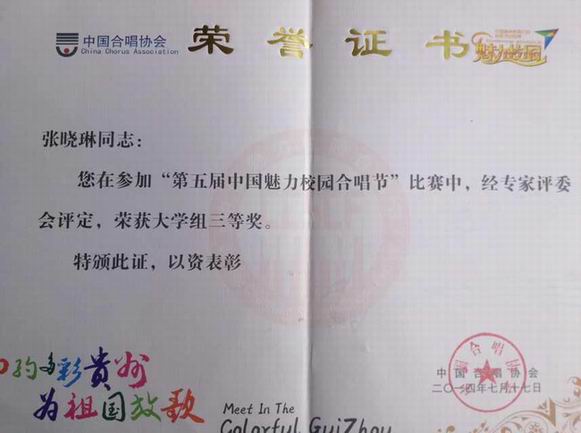 中国合唱协会
China Chorus Association
荣誉证书
魅力校园
张晓琳同志：
您在参加“第五届中国魅力校园合唱节”比赛中，经专家评委
会评定，荣获大学组三等奖。
特颁此证，以资表彰
中国合唱协会
二〇一四年七月十七日
约多彩贵州
为祖国放歌
Meet In The
Colorful GuiZhou